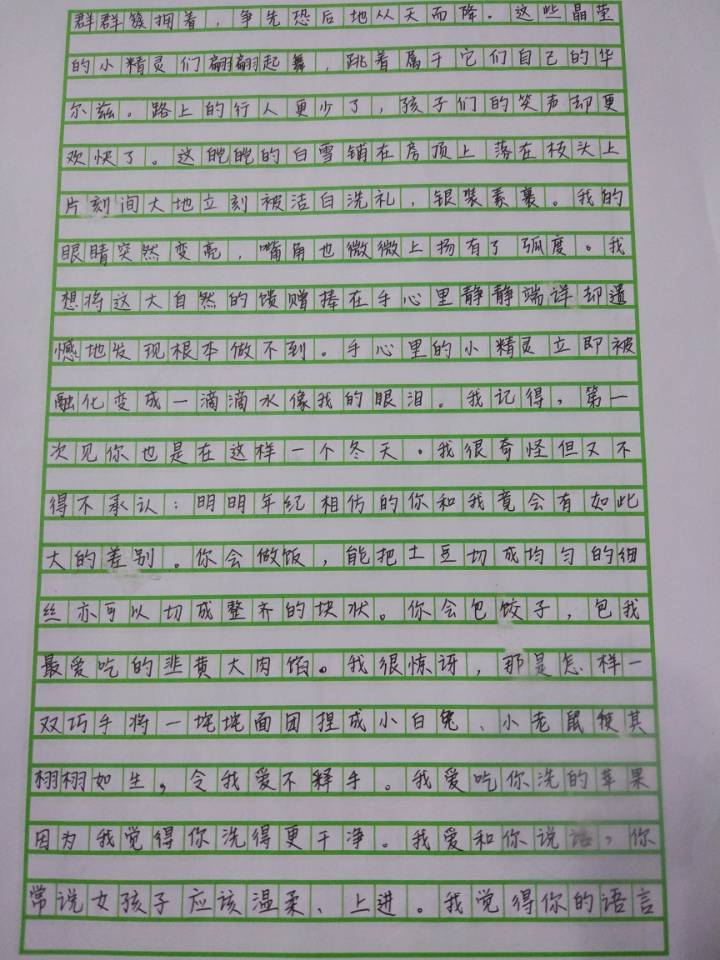 群群簇拥着，争先恐后地从天而降。这些晶莹
的小精灵们翩翩起舞，跳着属于它们自己的华
尔兹。路上的行人更少了，孩子们的笑声却更
欢快了。这皑皑的白雪铺在房顶上落在枝头上
片刻间大地立刻被洁白洗礼，银装素裹。我的
眼睛突然变亮，嘴角也微微上扬有了弧度。我
想将这大自然的馈赠捧在手心里静静端详却遗
憾地发现根本做不到。手心里的小精灵立即被
融化变成一滴滴水像我的眼泪。我记得，第一
次见你也是在这样一个冬天。我很奇怪但又不
得不承认：明明年纪相仿的你和我竟会有如此
大的差别。你会做饭，能把土豆切成均匀的细
丝亦可以切成整齐的块状。你会包饺子，包我
最爱吃的韭黄大肉馅。我很惊讶，那是怎样一
双巧手将一垞垞面团捏成小白兔、小老鼠使其
栩栩如生，令我爱不释手。我爱吃你洗的苹果
因为我觉得你洗得更干净。我爱和你说话，你
常说女孩子应该温柔、上进。我觉得你的语言